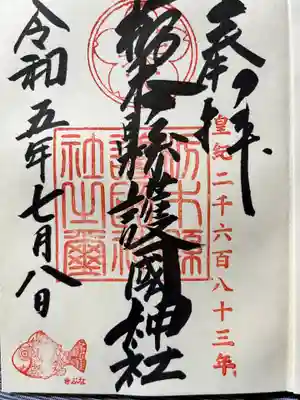 奉拝
皇紀二千六百八十三年
栃木縣護國神社
令和五年七月八日
栃木縣
護國神
社之璽